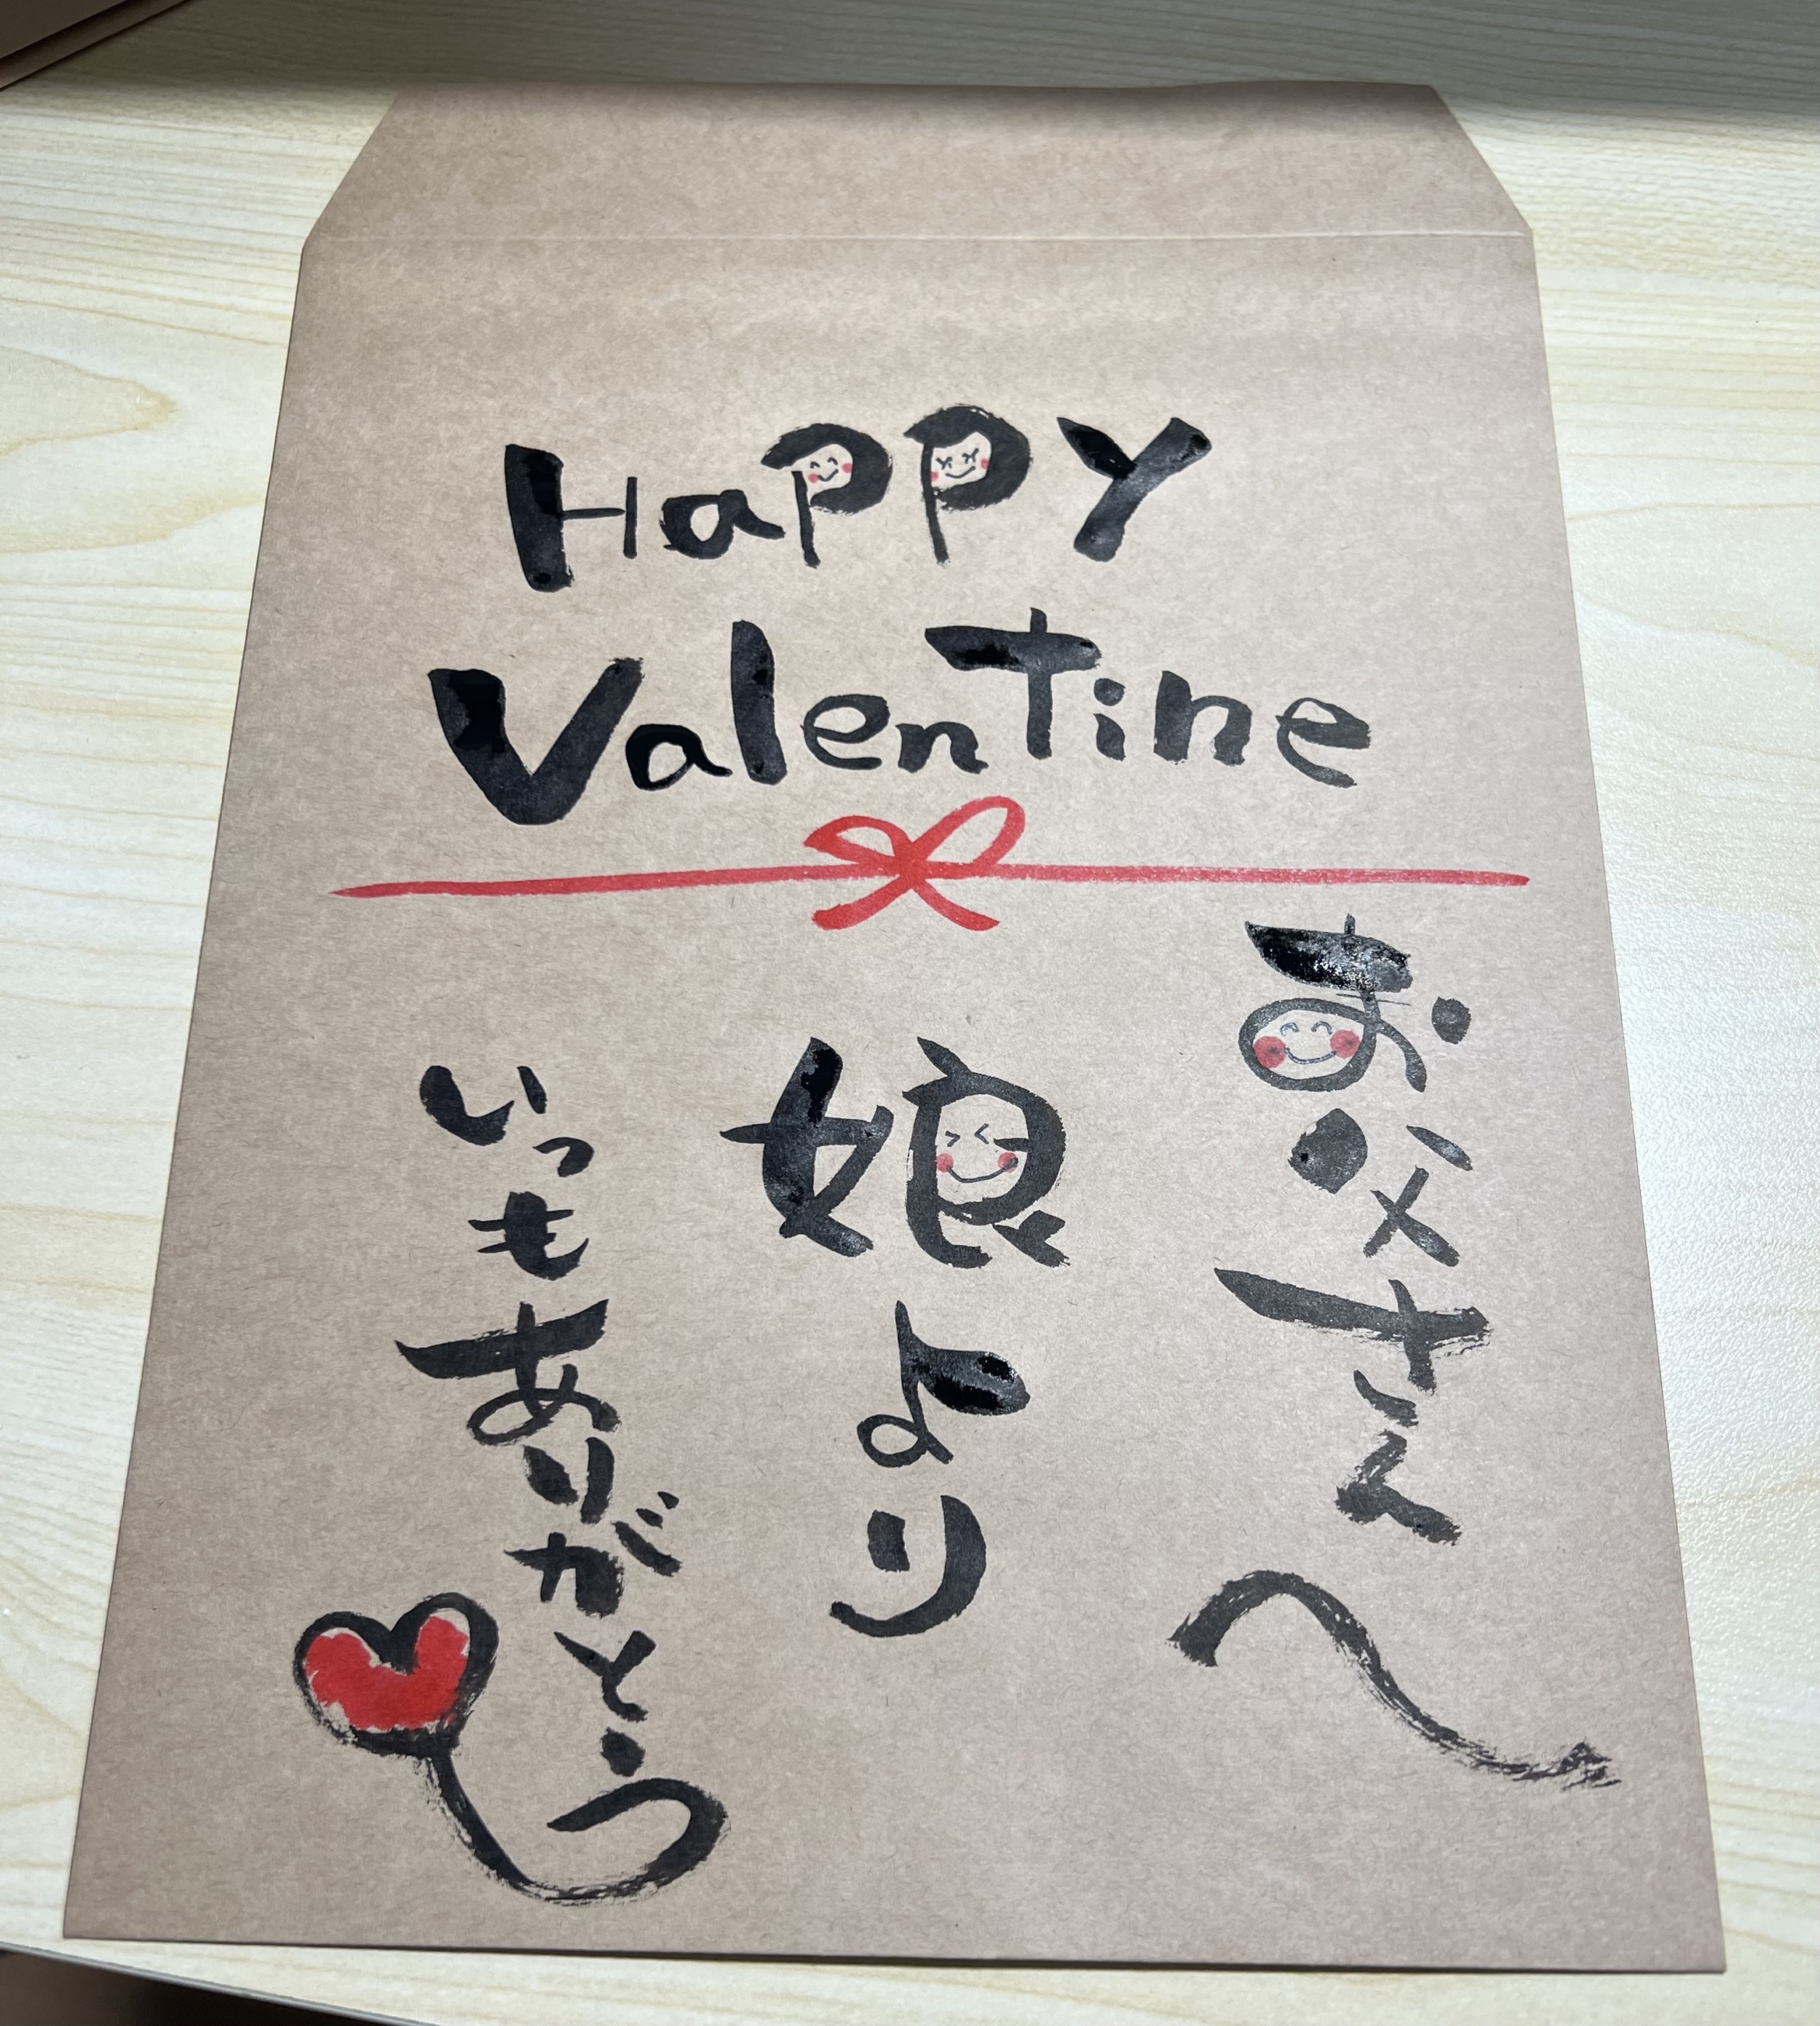 Happy
Valentine
お父さんへ
娘より
いつもありがとう